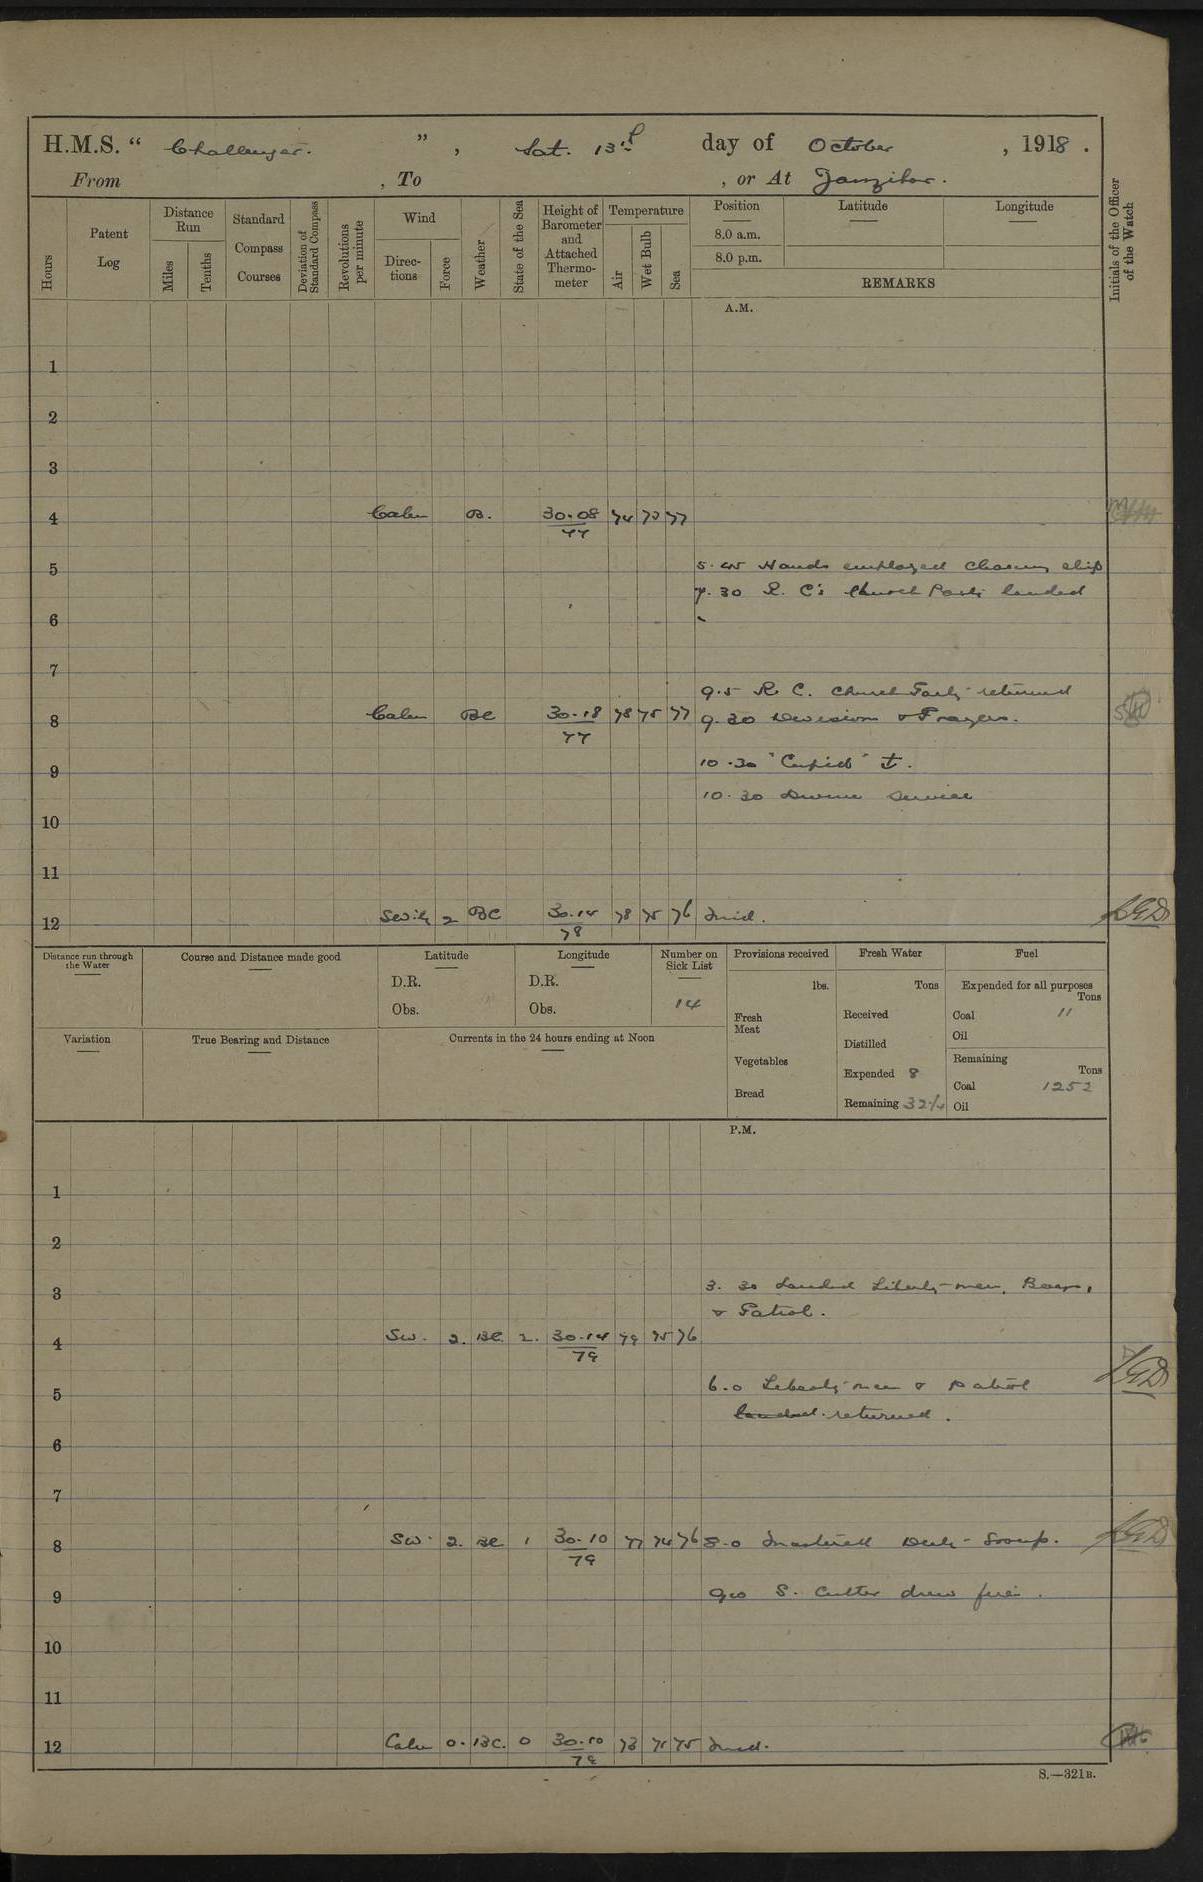 H.M.S. “ Challenger. ” , Sat. 13th day of October , 1918 .
From , To , or At Zanzibar.
Hours
Patent Log
Distance Run
Miles
Tenths
Standard Compass Courses
Deviation of Standard Compass
Revolutions per minute
Wind
Directions
Force
Weather
State of the Sea
Height of Barometer and Attached Thermometer
Temperature
Air
Wet Bulb
Sea
Position
8.0 a.m.
8.0 p.m.
Latitude
Longitude
REMARKS
Initials of the Officer of the Watch
A.M.
1
2
3
4 Calm B. 30.08 74 73 77
77
5 5.45 Hands employed cleaning ship
7.30 R. C's Church Party landed
6
7
9.5 R. C. Church Party returned
8 Calm BC 30.18 78 75 77 9.30 Divisions & Prayers.
77
9 10.30 "Cupid"
10.30 Divine Service
10
11
12 SW'ly 2 BC 30.14 78 75 76
78
Distance run through the Water
Course and Distance made good
Latitude
D.R.
Obs.
Longitude
D.R.
Obs.
Number on Sick List
14
Provisions received
lbs.
Fresh Meat
Vegetables
Bread
Fresh Water
Tons
Received
Distilled
Expended 8
Remaining
Fuel
Expended for all purposes
Tons
Coal 11
Oil
Remaining
Tons
Coal 1252
Oil
Variation
True Bearing and Distance
Currents in the 24 hours ending at Noon
P.M.
1
2
3 3.30 Landed Liberty-men, Boys,
& Patrol.
4 SW. 2. BC 2. 30.14 79 75 76
79
6.0 Liberty-men & patrol
5
landed returned.
6
7
8 SW. 2. BC 1 30.10 77 74 76 8.0
79
9 S. Cutter drew fires.
10
11
12 Calm 0. BC. 0 30.10 73 71 75
79
S.—321B.